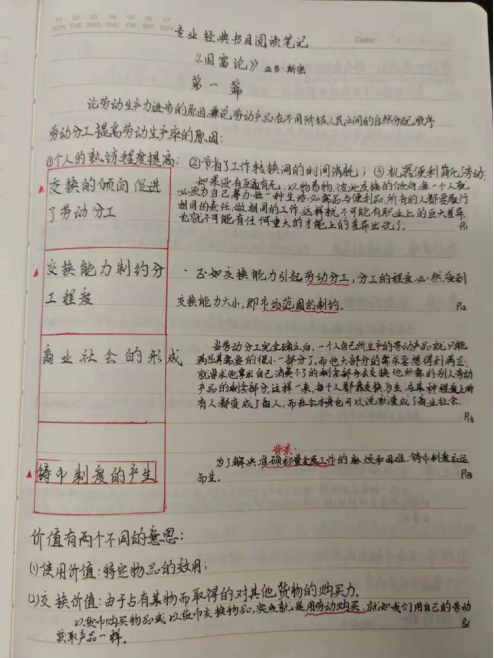 01 02 03 04 05 06 07
MON TUE WED THU FRI SAT SUN
Date: / /
专业经典书目阅读笔记
《国富论》亚当·斯密
第一篇
论劳动生产力进步的原因,兼论劳动产品在不同阶级人民之间的自然分配顺序
劳动分工提高劳动生产率的原因:
①个人的熟练程度提高; ②节省了工作转换间的时间消耗; ③机器便利简化劳动;
交换的倾向促进
了劳动分工
如果没有互通有无、以物易物,彼此交换的倾向,每一个人就
必须为自己筹办每一种生活必需品与便利品,所有的人都要履行
相同的责任,做相同的工作,这样就不可能有职业上的巨大差异,
也就不可能有任何重大的才能上的差异出现了。
交换能力制约分
工程度
正如交换能力引起劳动分工,分工的程度必然受到
交换能力大小,即市场范围的制约。
商业社会的形成
当劳动分工完全确立后,一个人自己所生产的劳动产品就只能
满足其需要的很小一部分了,而他大部分的需求要想得到满足,
就要求他拿出自己消费不了的剩余部分去交换他所需的别人劳动
产品的剩余部分,这样一来,每个人都靠交换为生,在某种程度上所
有人都变成了商人,而社会本身也可以说渐渐成了商业社会。
铸币制度的产生
背景:
为了解决准确称量金属工作的麻烦和困难,铸币制度应运
而生。
价值有两个不同的意思:
(1)使用价值:特定物品的效用;
(2)交换价值:由于占有某物而取得的对其他货物的购买力.
以货币购买物品或以货币交换物品,实质就是用劳动购买,就如我们用自己的劳动
获取产品一样。